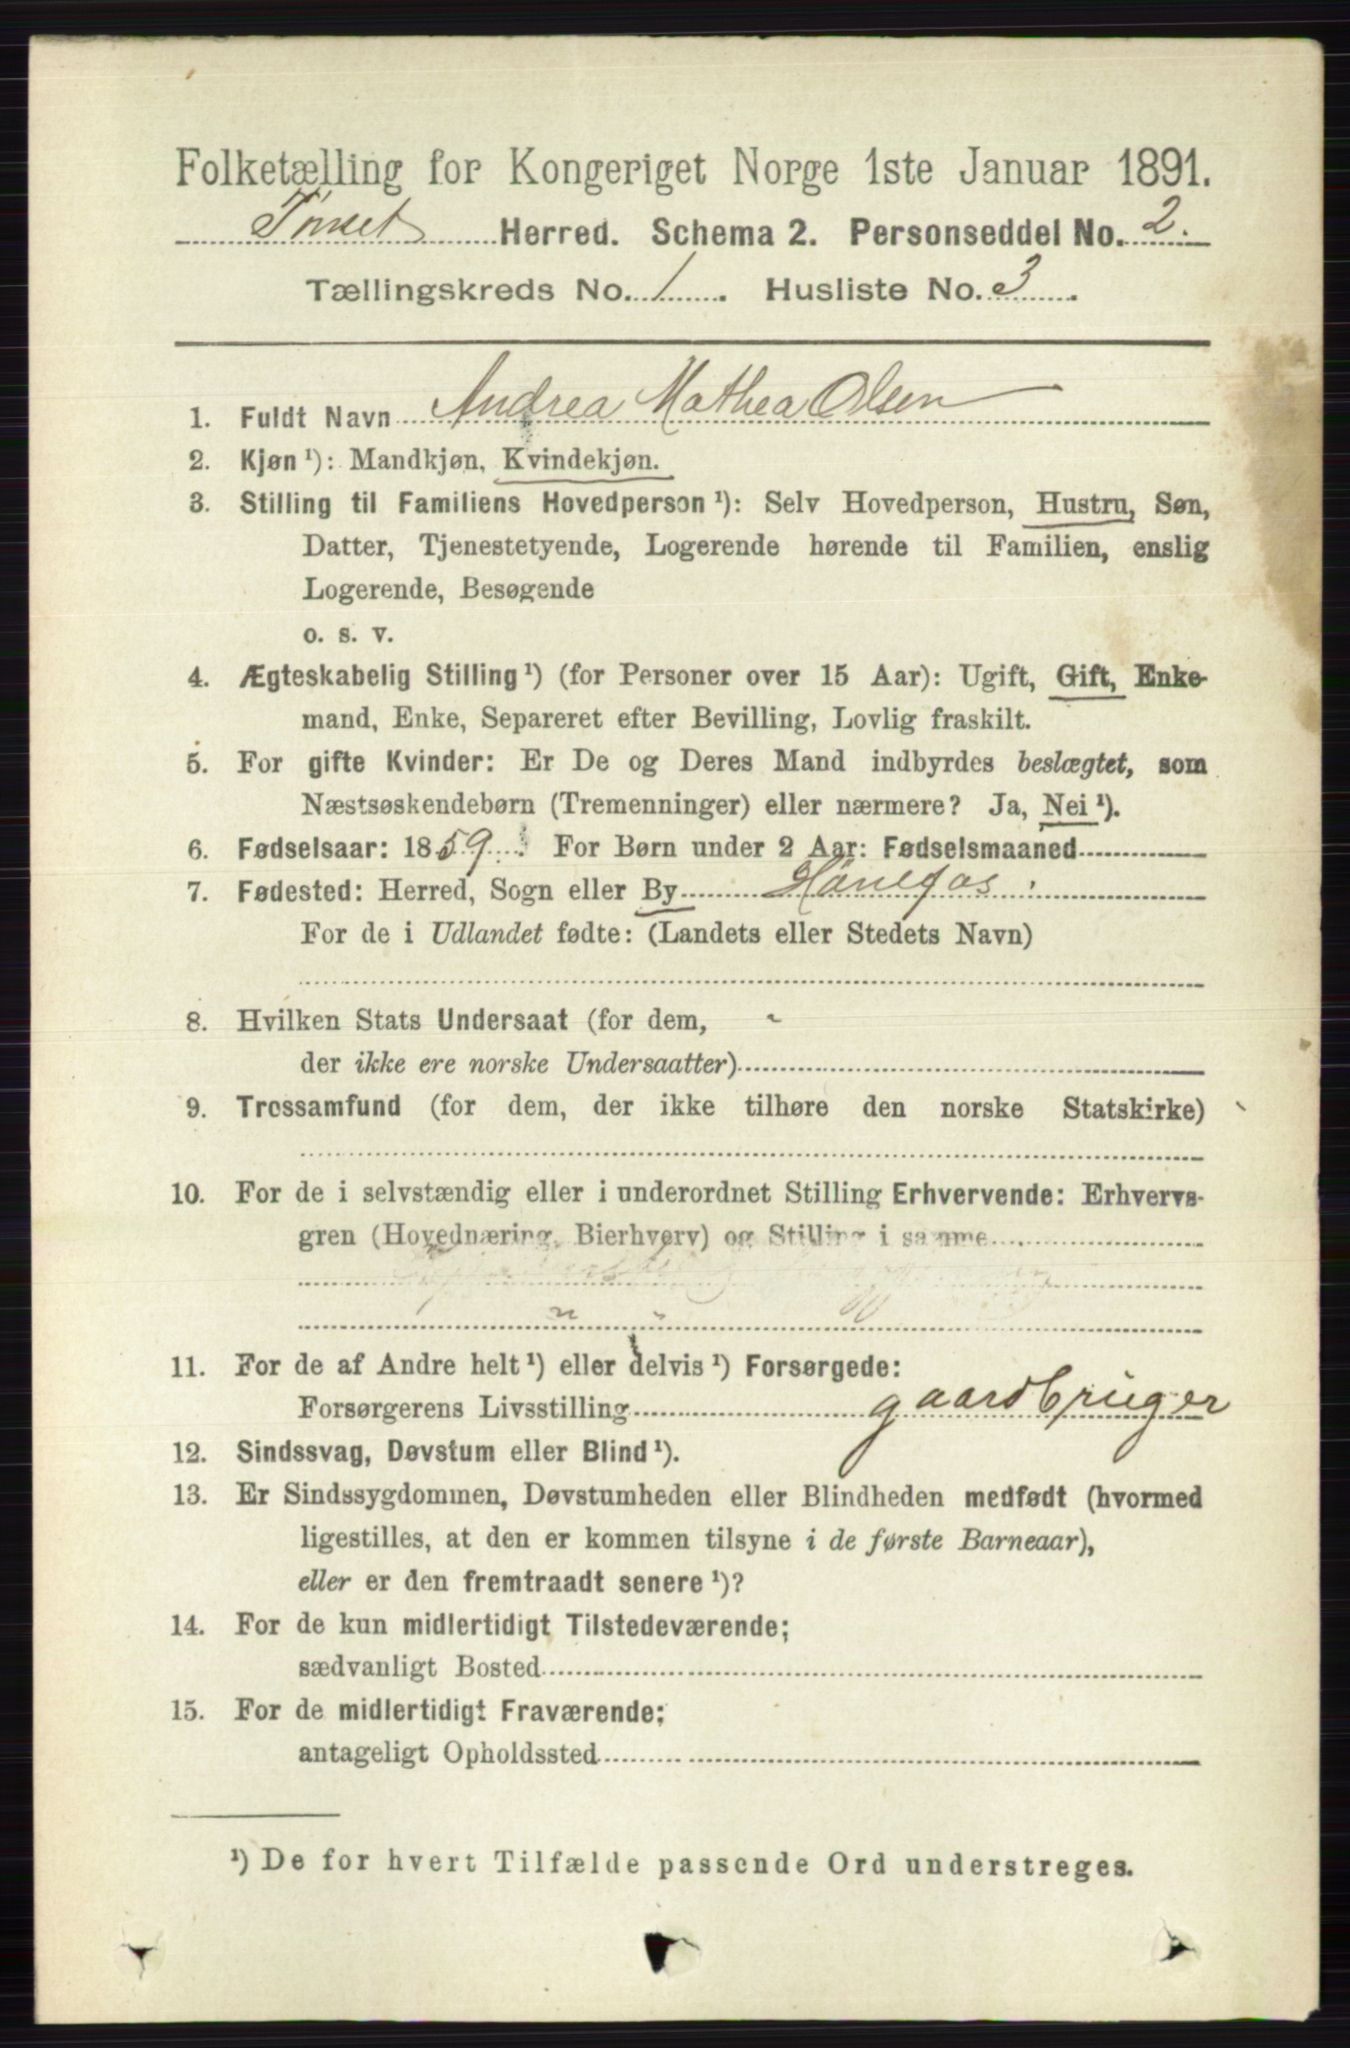 Folketælling for Kongeriget Norge 1ste Januar 1891.
Tønset Herred. Schema 2. Personseddel No. 2.
Tællingskreds No. 1. Husliste No. 3.
1. Fuldt Navn Andrea Mathea Olsen
2. Kjøn ¹): Mandkjøn, Kvindekjøn.
3. Stilling til Familiens Hovedperson ¹): Selv Hovedperson, Hustru, Søn,
Datter, Tjenestetyende, Logerende hørende til Familien, enslig
Logerende, Besøgende
o. s. v.
4. Ægteskabelig Stilling ¹) (for Personer over 15 Aar): Ugift, Gift, Enke-
mand, Enke, Separeret efter Bevilling, Lovlig fraskilt.
5. For gifte Kvinder: Er De og Deres Mand indbyrdes beslægtet, som
Næstsøskendebørn (Tremenninger) eller nærmere? Ja, Nei ¹).
6. Fødselsaar: 1859. For Børn under 2 Aar: Fødselsmaaned
7. Fødested: Herred, Sogn eller By Hønefos
For de i Udlandet fødte: (Landets eller Stedets Navn)
8. Hvilken Stats Undersaat (for dem,
der ikke ere norske Undersaatter)
9. Trossamfund (for dem, der ikke tilhøre den norske Statskirke)
10. For de i selvstændig eller i underordnet Stilling Erhvervende: Erhvervs-
gren (Hovednæring, Bierhverv) og Stilling i samme
11. For de af Andre helt ¹) eller delvis ¹) Forsørgede:
Forsørgerens Livsstilling gaardbruger
12. Sindssvag, Døvstum eller Blind ¹).
13. Er Sindssygdommen, Døvstumheden eller Blindheden medfødt (hvormed
ligestilles, at den er kommen tilsyne i de første Barneaar),
eller er den fremtraadt senere ¹)?
14. For de kun midlertidigt Tilstedeværende;
sædvanligt Bosted
15. For de midlertidigt Fraværende;
antageligt Opholdssted
¹) De for hvert Tilfælde passende Ord understreges.